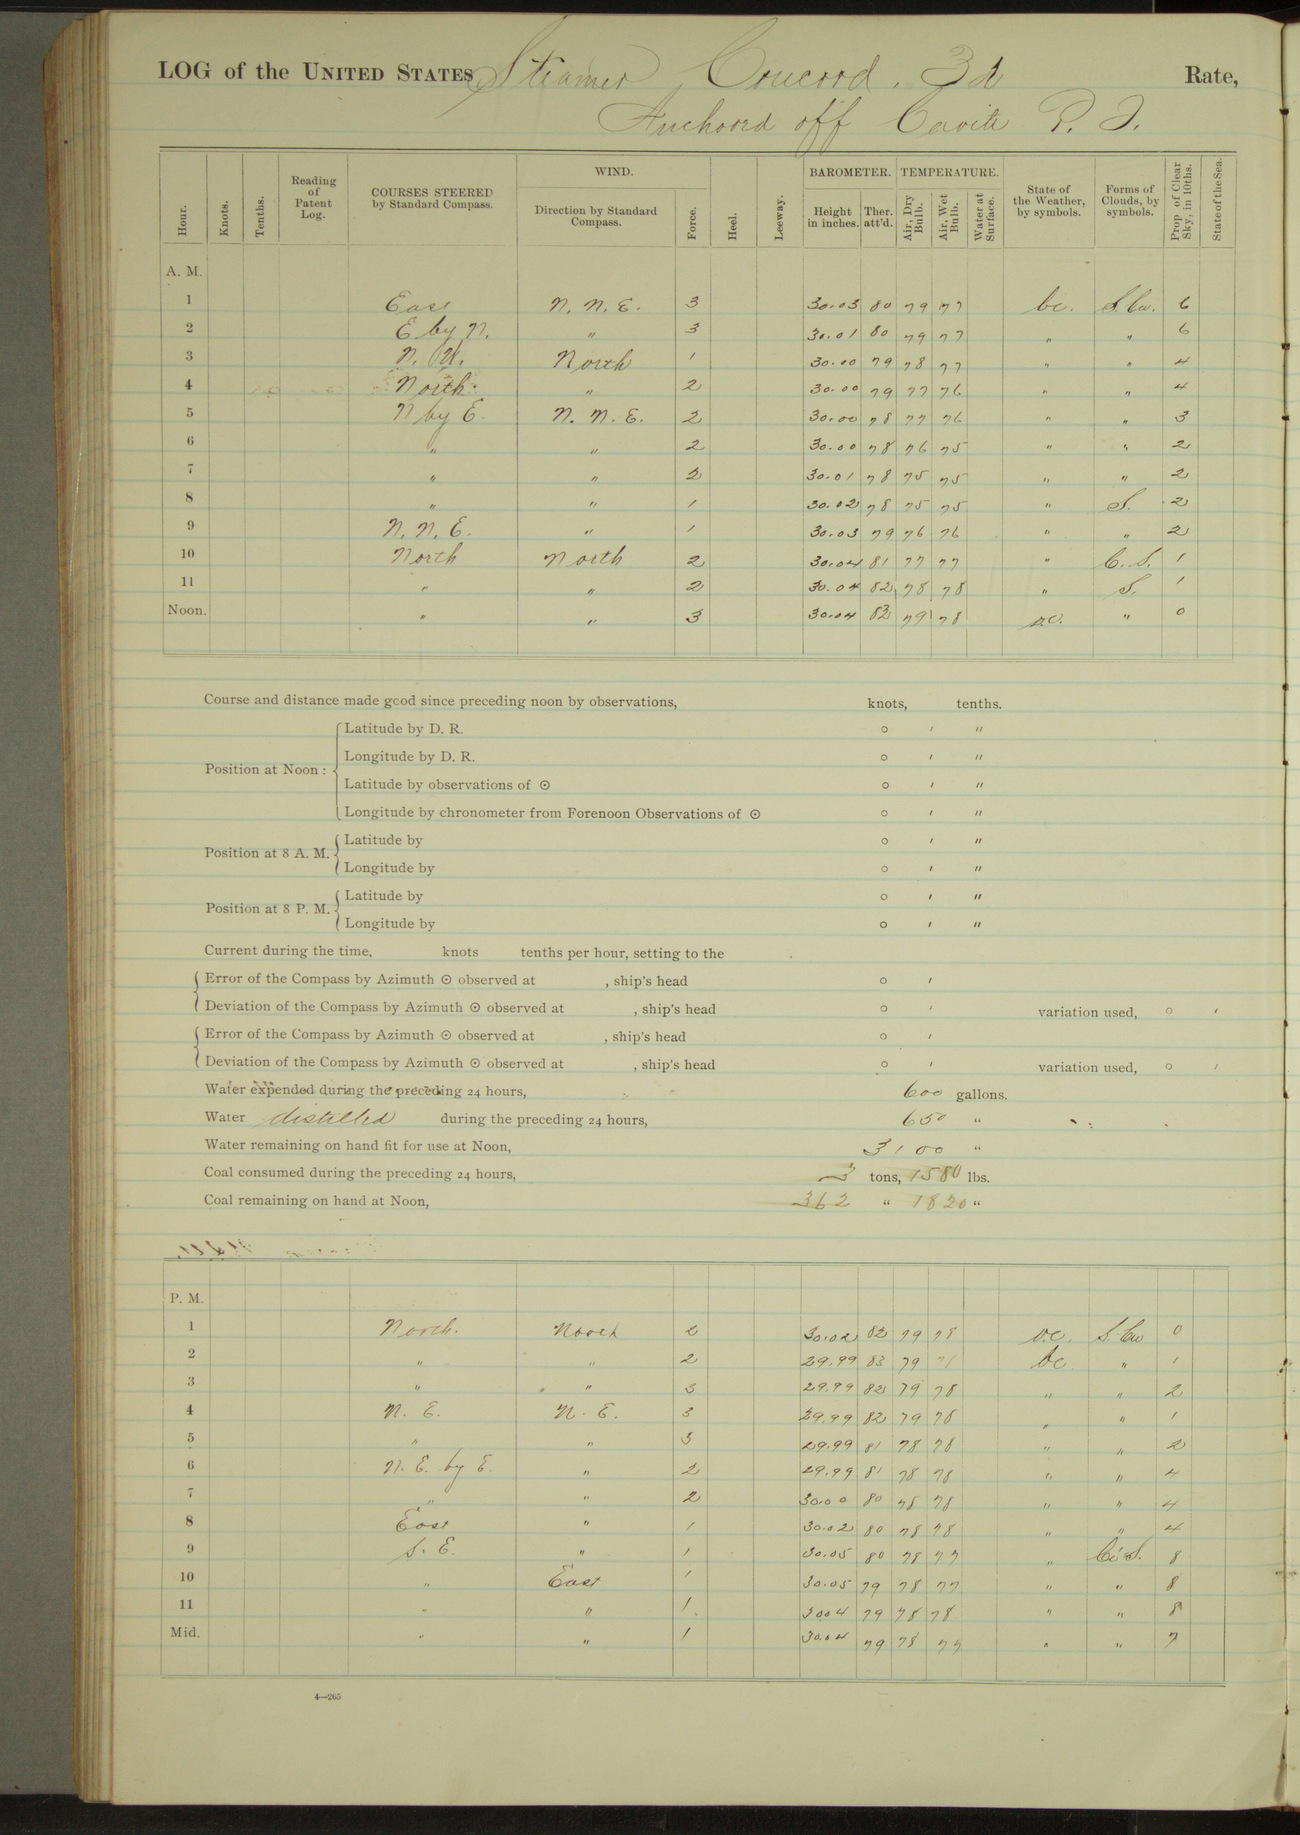 LOG of the UNITED STATES Steamer Concord, 3d Rate,
Anchored off Cavite P. I.
Hour. Knots. Tenths. Reading of Patent Log. COURSES STEERED by Standard Compass. WIND. Direction by Standard Compass. Force. Heel. Leeway. BAROMETER. Height in inches. Ther. att'd. TEMPERATURE. Air, Dry Bulb. Air, Wet Bulb. Water at Surface. State of the Weather, by symbols. Forms of Clouds, by symbols. Prop. of Clear Sky, in 10ths. State of the Sea.
A. M.
1 East N. N. E. 3 30.03 80 79 77 bc. S. Cu. 6
2 E by N. " 3 30.01 80 79 77 " " 6
3 North 1 30.00 79 78 77 " " 4
4 North. " 2 30.00 79 77 76 " " 4
5 N by E. N. N. E. 2 30.00 78 77 76 " " 3
6 " " 2 30.00 78 76 75 " " 2
7 " " 2 30.01 78 75 75 " " 2
8 " " 1 30.02 78 75 75 " S. 2
9 N. N. E. " 1 30.03 79 76 76 " " 2
10 North North 2 30.04 81 77 77 " C. S. 1
11 " " 2 30.04 82 78 78 " S. 1
Noon. " " 3 30.04 83 79 78 o.c. " 0
Course and distance made good since preceding noon by observations, knots, tenths.
Position at Noon: Latitude by D. R. ° ′ ″
Longitude by D. R. ° ′ ″
Latitude by observations of ☉ ° ′ ″
Longitude by chronometer from Forenoon Observations of ☉ ° ′ ″
Position at 8 A. M. Latitude by ° ′ ″
Longitude by ° ′ ″
Position at 8 P. M. Latitude by ° ′ ″
Longitude by ° ′ ″
Current during the time, knots tenths per hour, setting to the
Error of the Compass by Azimuth ☉ observed at , ship's head ° ′
Deviation of the Compass by Azimuth ☉ observed at , ship's head ° ′ variation used, ° ′
Error of the Compass by Azimuth ☉ observed at , ship's head ° ′
Deviation of the Compass by Azimuth ☉ observed at , ship's head ° ′ variation used, ° ′
Water expended during the preceding 24 hours, 600 gallons.
Water distilled during the preceding 24 hours, 650 "
Water remaining on hand fit for use at Noon, 3100 "
Coal consumed during the preceding 24 hours, 3 tons, 1580 lbs.
Coal remaining on hand at Noon, 362 " 1820 "
P. M.
1 North. North 2 30.02 82 79 78 o.c. S. Cu 0
2 " " 2 29.99 83 79 bc. " 1
3 " " 3 29.99 82 79 78 " " 2
4 N. E. N. E. 3 29.99 82 79 78 " " 1
5 " " 3 29.99 81 78 78 " " 2
6 N. E. by E. " 2 29.99 81 78 78 " " 4
7 " " 2 30.00 80 78 78 " " 4
8 East " 1 30.02 80 78 78 " " 4
9 S. E. " 1 30.05 80 78 77 " Ci S. 8
10 " East 1 30.05 79 78 77 " " 8
11 " " 1. 30.04 79 78 78 " " 8
Mid. " " 1 30.04 79 78 77 " " 7
4—265